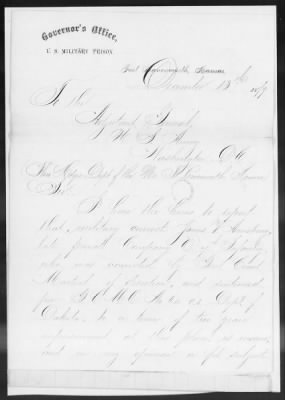 Governor's Office,
U. S. MILITARY PRISON
Fort Leavenworth, Kansas
December 13th 1879
To the
Adjutant General
U. S. Army
Washington D.C.
Thro' Hdqrs. Dept of the Mo. Ft Leavenworth Kansas
Sir:
I have the honor to report
that military convict James
late private Company D Infantry
who was convicted by Genl Court
Martial of and sentenced
per G.C.M.O. No Dept of
Dakota, to a term of two years
imprisonment at this place, is insane,
and in my opinion a fit subject